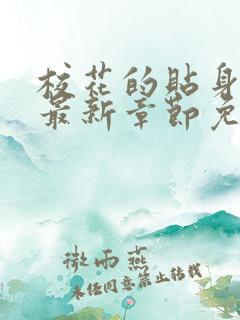 校花的贴身
最新章节免
微雨燕
未经同意禁止转载